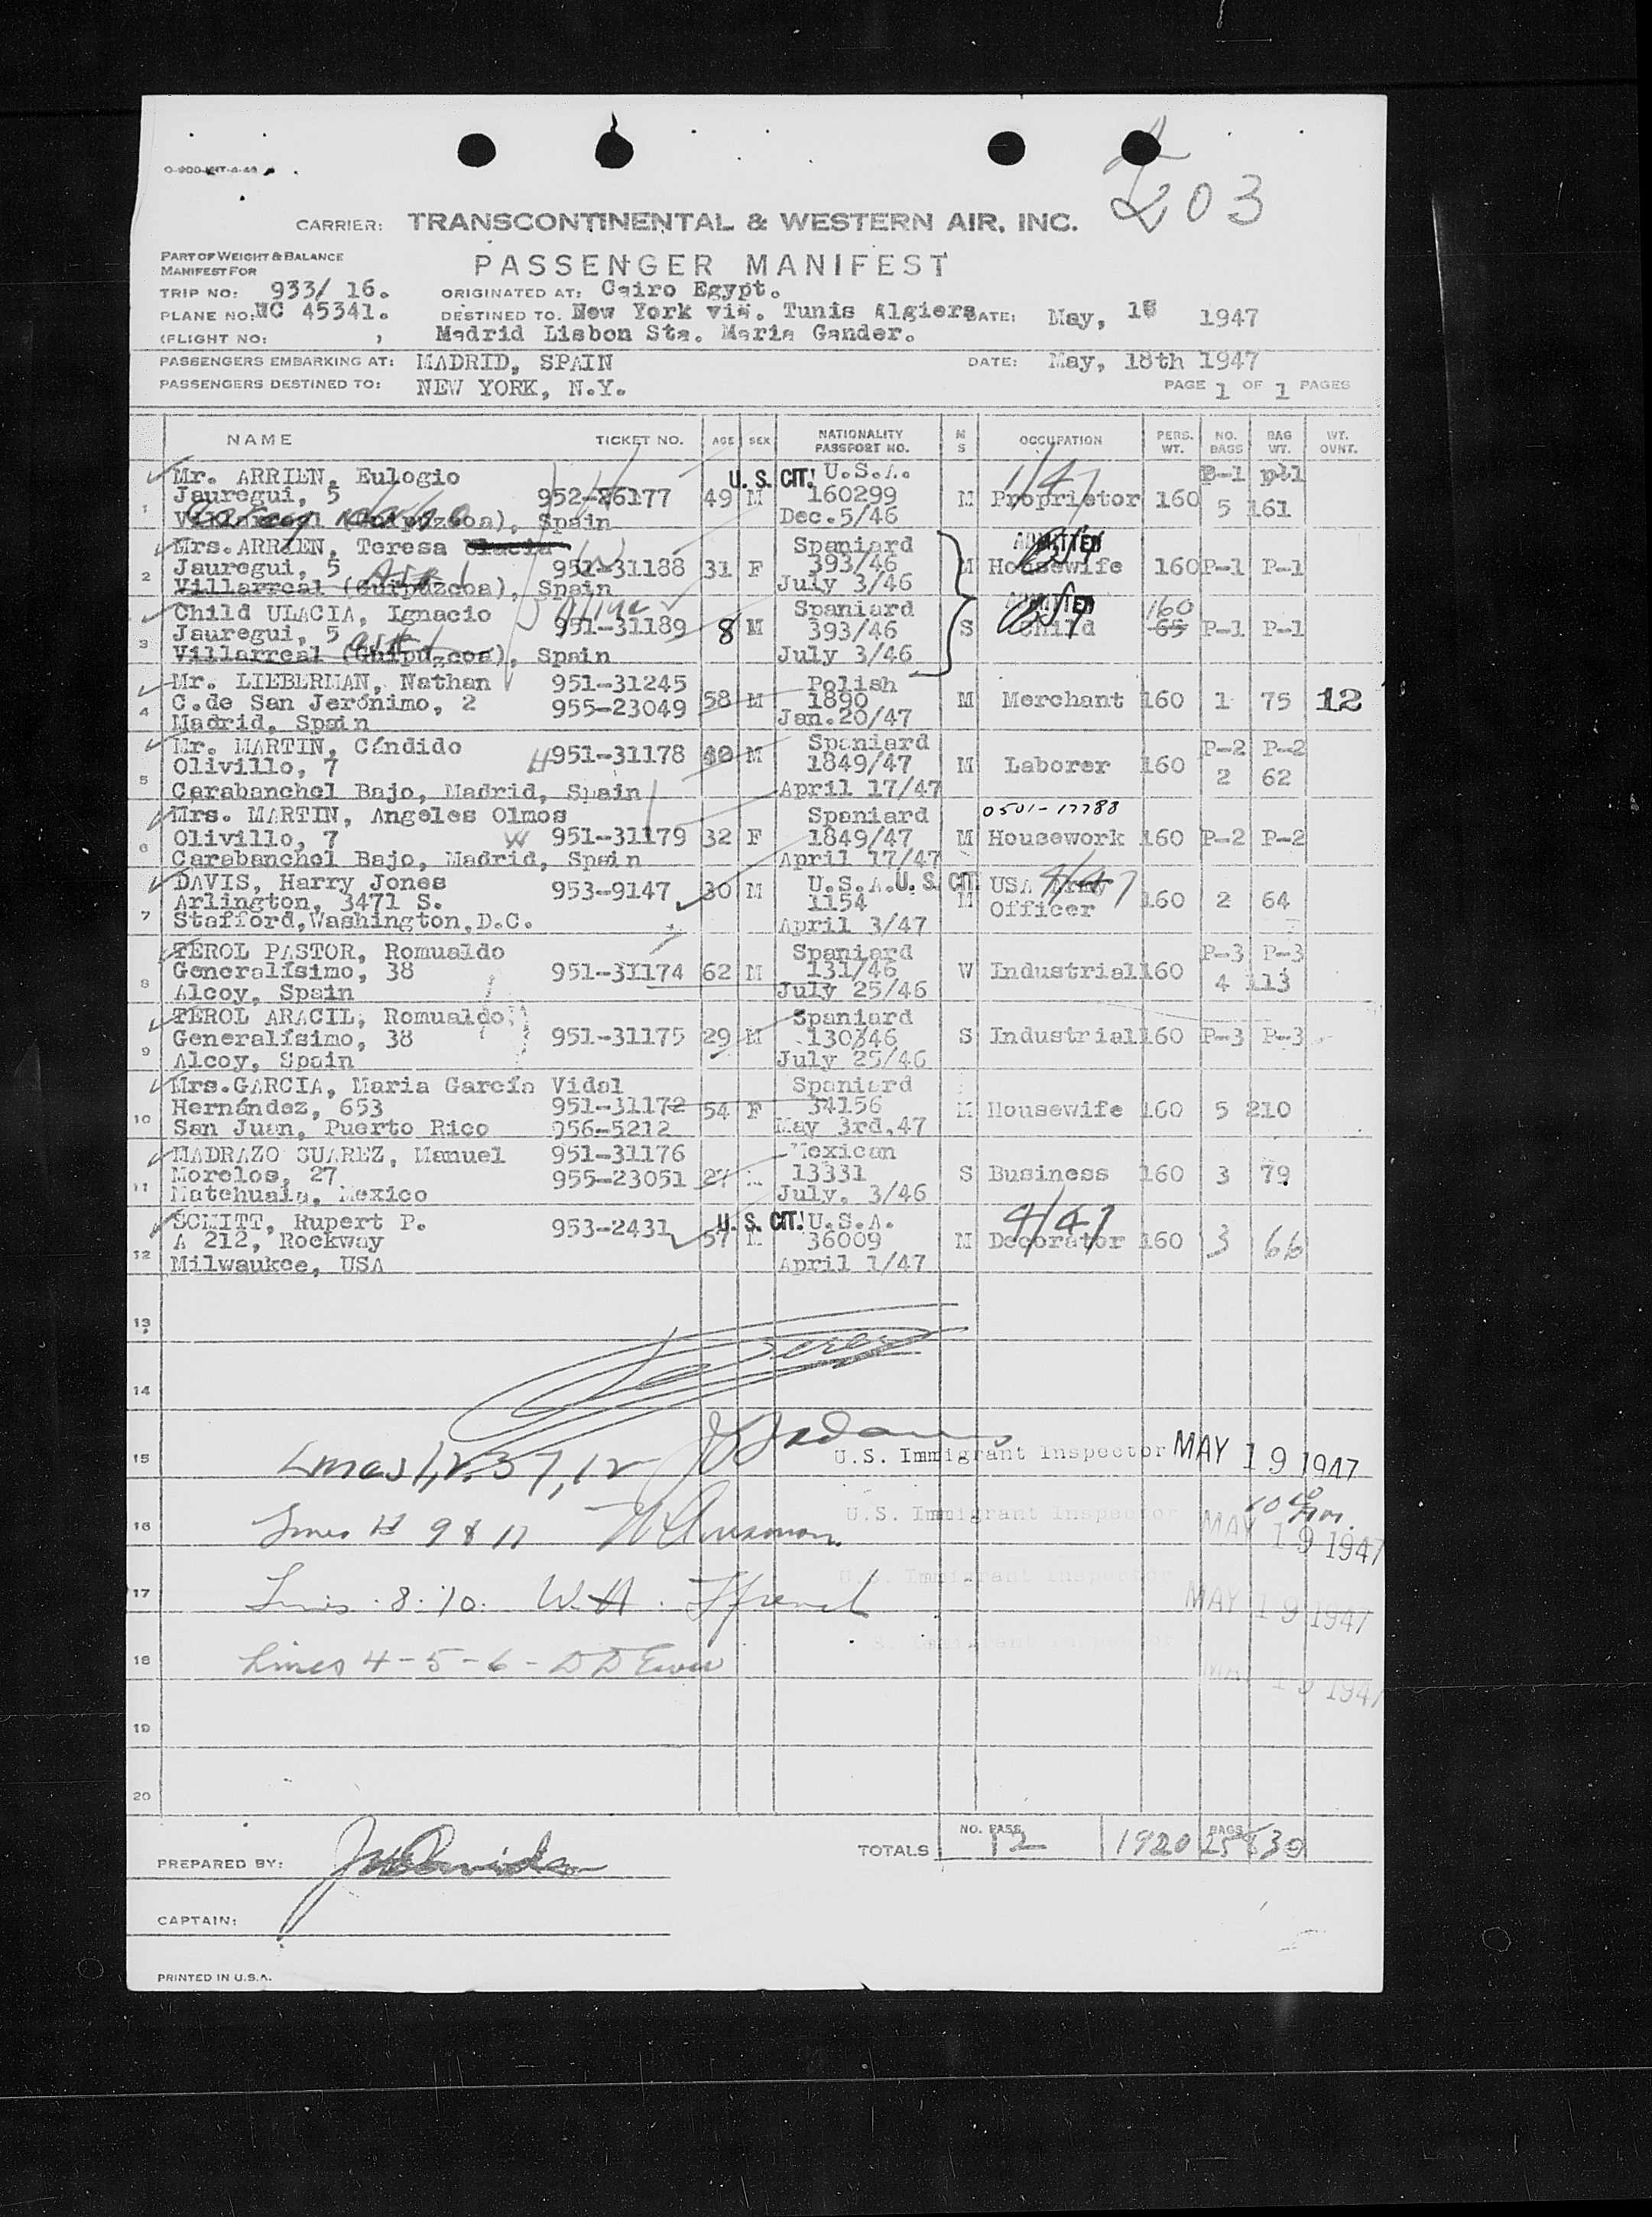 O-900-INT-4-46
203
CARRIER: TRANSCONTINENTAL & WESTERN AIR, INC.
PART OF WEIGHT & BALANCE
MANIFEST FOR
PASSENGER MANIFEST
TRIP NO: 933/ 16. ORIGINATED AT: Cairo Egypt.
PLANE NO: NC 45341. DESTINED TO. New York via. Tunis Algiers DATE: May, 1947
(FLIGHT NO: ) Madrid Lisbon Sta. Maria Gander.
PASSENGERS EMBARKING AT: MADRID, SPAIN DATE: May, 18th 1947
PASSENGERS DESTINED TO: NEW YORK, N.Y. PAGE 1 OF 1 PAGES
NAME TICKET NO. AGE SEX NATIONALITY PASSPORT NO. M S OCCUPATION PERS. WT. NO. BAGS BAG WT. WT. OVNT.
Mr. ARRIEN, Eulogio U. S. CIT. U.S.A. P-1 p-1
Jauregui, 5 952-26177 49 M 160299 M Proprietor 160 5 161
1 Villarreal (Guipuzcoa), Spain Dec.5/46
Mrs. ARRIEN, Teresa Ulacia Spaniard ADMITTED
2 Jauregui, 5 951-31188 31 F 393/46 M Housewife 160 P-1 P-1
Villarreal (Guipuzcoa), Spain July 3/46
Child ULACIA, Ignacio Spaniard ADMITTED 160
3 Jauregui, 5 951-31189 8 M 393/46 S Child 65 P-1 P-1
Villarreal (Guipuzcoa), Spain July 3/46
Mr. LIEBERMAN, Nathan 951-31245 Polish
4 C.de San Jerónimo, 2 955-23049 58 M 1890 M Merchant 160 1 75 12
Madrid, Spain Jan.20/47
Mr. MARTIN, Cándido Spaniard P-2 P-2
5 Olivillo, 7 951-31178 40 M 1849/47 M Laborer 160 2 62
Carabanchel Bajo, Madrid, Spain April 17/47
Mrs. MARTIN, Angeles Olmos Spaniard 0501-17788
6 Olivillo, 7 W 951-31179 32 F 1849/47 M Housework 160 P-2 P-2
Carabanchel Bajo, Madrid, Spain April 17/47
DAVIS, Harry Jones U.S.A. U. S. CIT. USA Army 4/47
7 Arlington, 3471 S. 953-9147 30 M 1154 M Officer 160 2 64
Stafford,Washington,D.C. April 3/47
TEROL PASTOR, Romualdo Spaniard P-3 P-3
8 Generalísimo, 38 951-31174 62 M 131/46 W Industrial 160 4 113
Alcoy, Spain July 25/46
TEROL ARACIL, Romualdo Spaniard
9 Generalísimo, 38 951-31175 29 M 130/46 S Industrial 160 P-3 P-3
Alcoy, Spain July 25/46
Mrs.GARCIA, Maria García Vidal Spaniard
10 Hernández, 653 951-31172 54 F 34156 M Housewife 160 5 210
San Juan, Puerto Rico 956-5212 May 3rd.47
MADRAZO SUAREZ, Manuel 951-31176 Mexican
11 Morelos, 27 955-23051 27 M 13331 S Business 160 3 79
Matehuala, Mexico July. 3/46
SCMITT, Rupert P. U. S. CIT. U.S.A. 4/47
12 A 212, Rockway 953-2431 57 M 36009 M Decorator 160 3 66
Milwaukee, USA April 1/47
13
14
15 Lines 1,2,3 7,12 U.S. Immigrant Inspector MAY 19 1947
16 Lines 9 & 11 U.S. Immigrant Inspector MAY 19 1947
17 Lines 8.10. W.H. Ffrench U.S. Immigrant Inspector MAY 19 1947
18 Lines 4-5-6- MAY 19 1947
19
20
TOTALS NO. PASS. 12 1920 BAGS 25 830
PREPARED BY:
CAPTAIN:
PRINTED IN U.S.A.